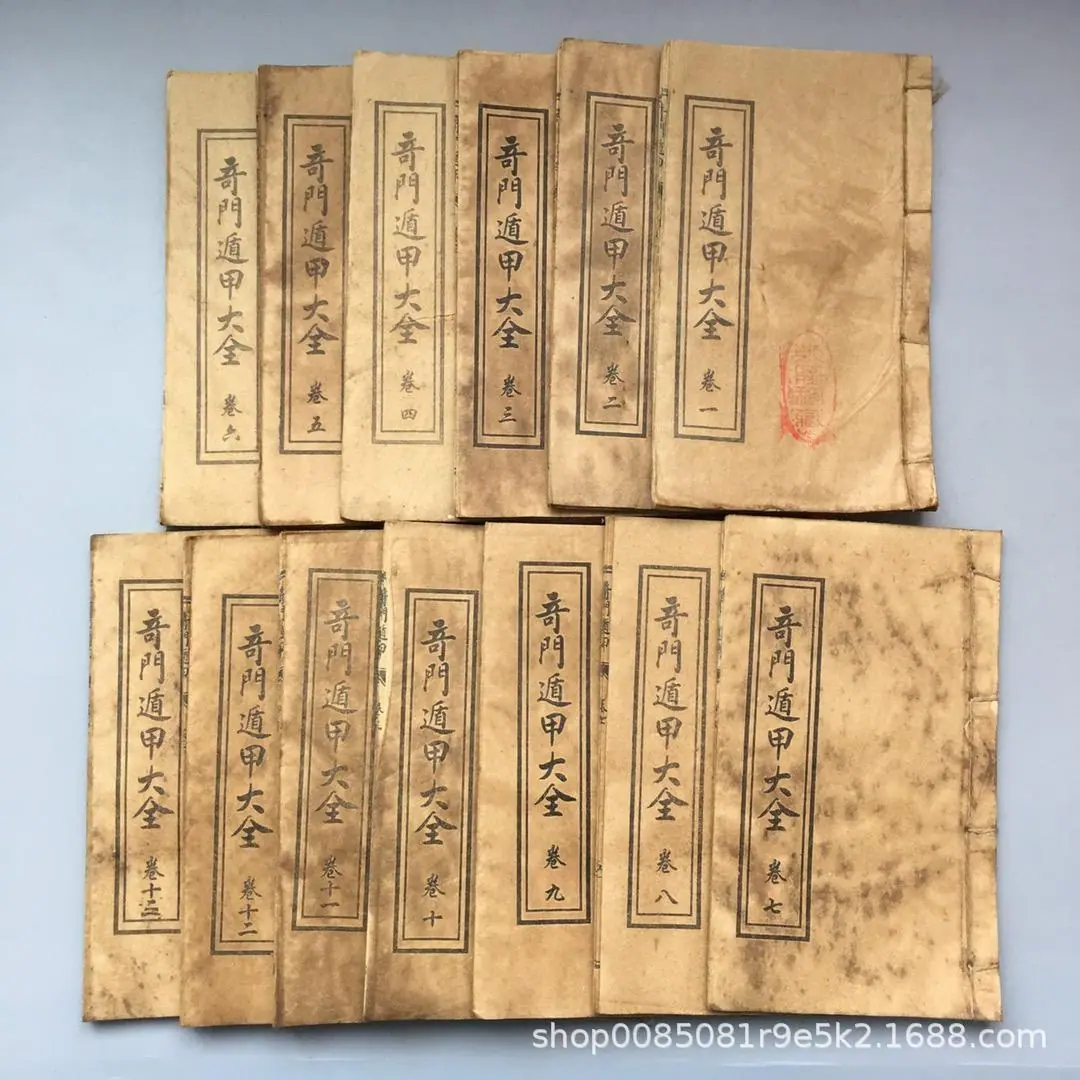 奇門遁甲大全 卷一
奇門遁甲大全 卷二
奇門遁甲大全 卷三
奇門遁甲大全 卷四
奇門遁甲大全 卷五
奇門遁甲大全 卷六
奇門遁甲大全 卷七
奇門遁甲大全 卷八
奇門遁甲大全 卷九
奇門遁甲大全 卷十
奇門遁甲大全 卷十一
奇門遁甲大全 卷十二
奇門遁甲大全 卷十三
shop0085081r9e5k2.1688.com